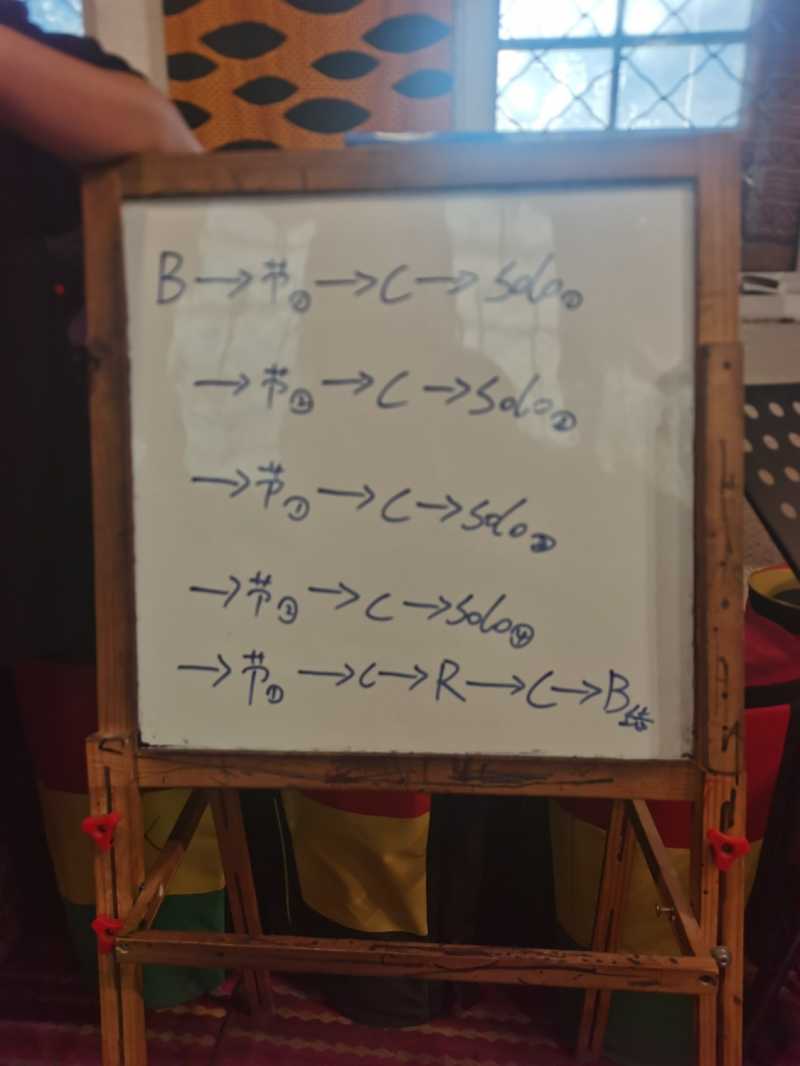 B→节①→C→Solo①
→节②→C→Solo②
→节①→C→Solo③
→节②→C→Solo④
→节①→C→R→C→B结